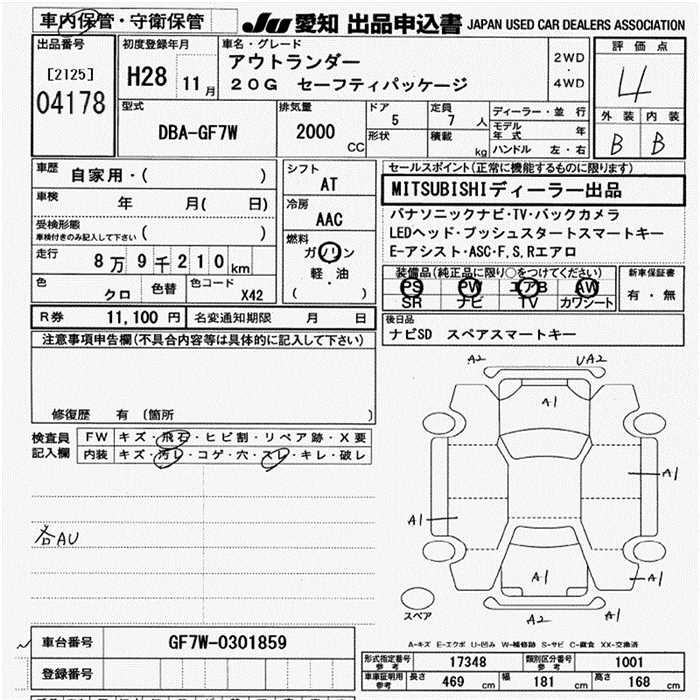 車内保管・守衛保管
JU 愛知 出品申込書 JAPAN USED CAR DEALERS ASSOCIATION
出品番号
[2125]
04178
初度登録年月
H28 11月
車名・グレード
アウトランダー
20G セーフティパッケージ
2WD
・
4WD
評価点
4
外装 内装
B B
型式
DBA-GF7W
排気量
2000 CC
ドア
5
形状
定員
7 人
積載
kg
ディーラー・並行
モデル年式 年
ハンドル 左・右
車歴
自家用・( )
車検
年 月( 日)
受検形態
車検付きのみ記入して下さい ( )
走行
8万9千210km
色
クロ
色替
色コード
X42
シフト
AT
冷房
AAC
燃料
ガソリン
軽・油
( )
セールスポイント(正常に機能するものに限ります)
MITSUBISHIディーラー出品
パナソニックナビ・TV・バックカメラ
LEDヘッド・プッシュスタートスマートキー
E-アシスト・ASC・F,S,Rエアロ
装備品(純正品に限り○をつけてください)
PS PW エアB AW
SR ナビ TV カワシート
新車保証書
有・無
後日品
ナビSD スペアスマートキー
R券 11,100 円 名変通知期限 月 日
注意事項申告欄(不具合内容等は具体的に記入して下さい)
修復歴 有 〔箇所 〕
検査員
記入欄
FW キズ・飛石・ヒビ割・リペア跡・X要
内装 キズ・汚レ・コゲ・穴・スレ・キレ・破レ
各AU
A2 UA2
A1
A1
A1
A1 A1
A2 A1
スペア
A-キズ E-エクボ U-凹み W-補修跡 S-サビ C-腐食 XX-交換済
車台番号 GF7W-0301859
登録番号
形式指定番号 参考 17348 類別区分番号 参考 1001
車庫証明用 参考 長さ 469 cm 幅 181 cm 高さ 168 cm